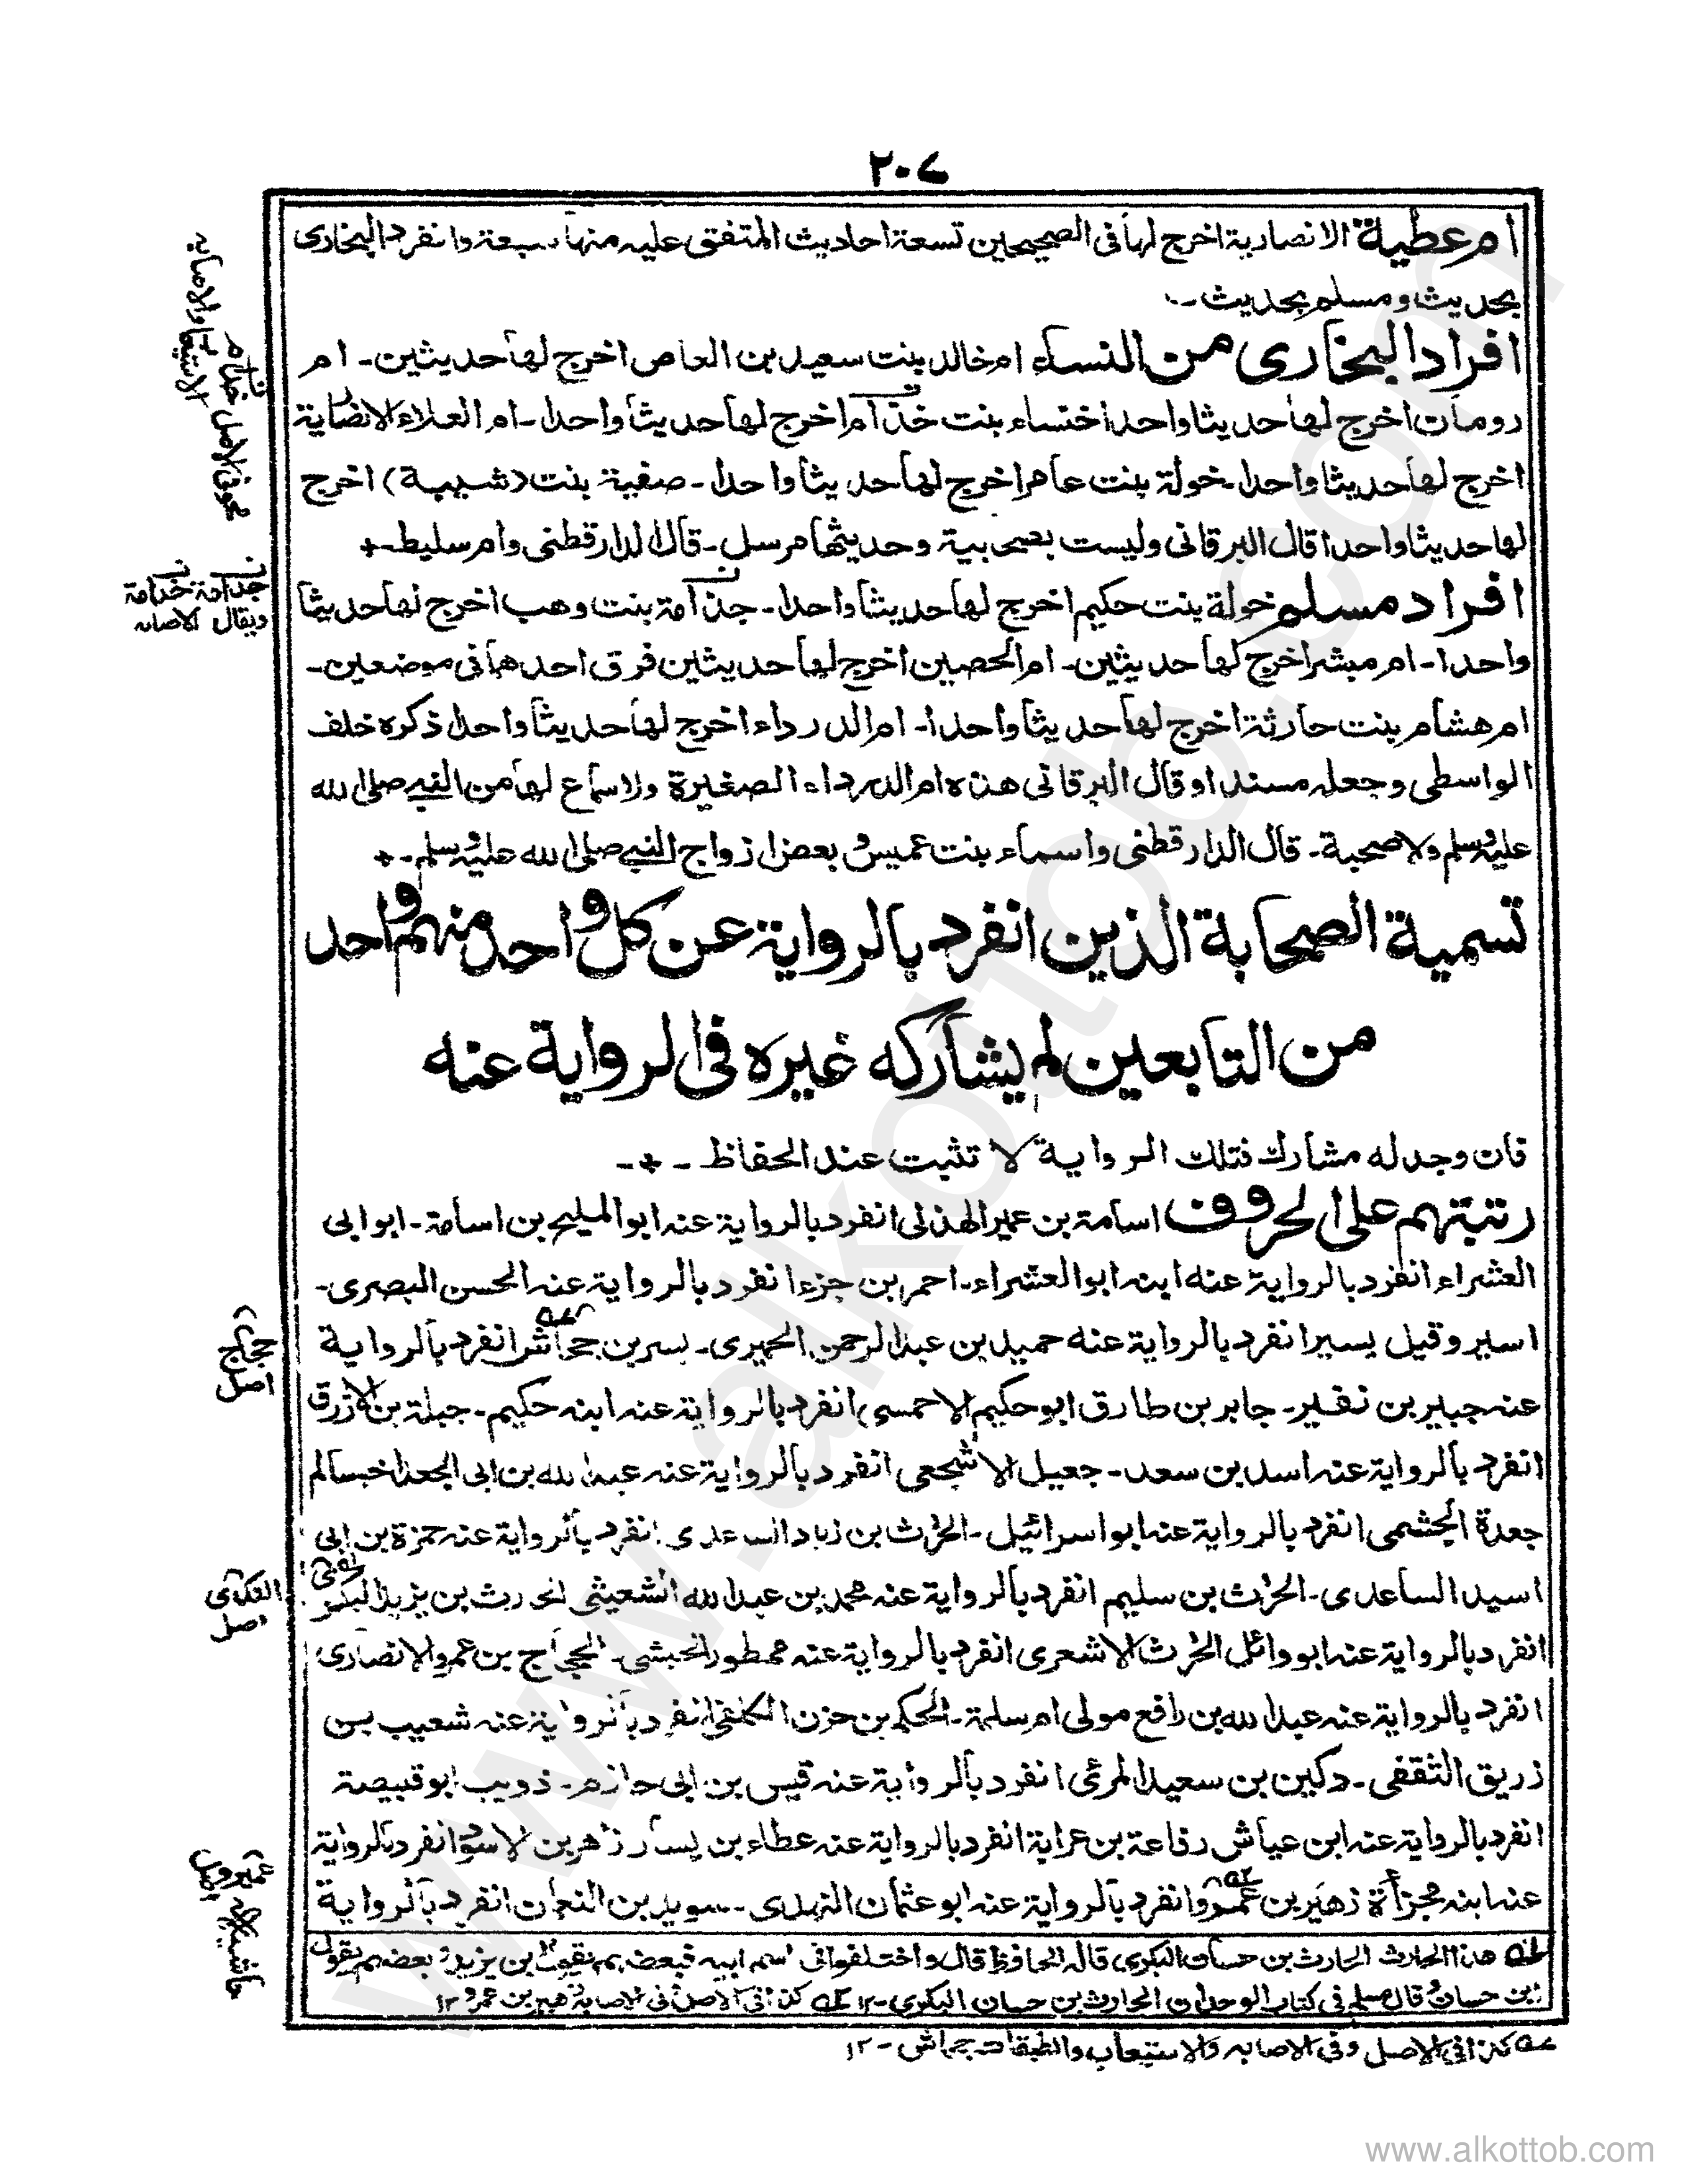 ٢٠٧
ام عطية الانصارية اخرج لها فى الصحيحين تسعة احاديث المتفق عليه منها سبعة وانفرد البخارى
بحديث ومسلم بحديث -
افراد البخارى من النساء ام خالد بنت سعيد بن العاص اخرج لها حديثين - ام
رومان اخرج لها حديثا واحدا خنساء بنت خذام اخرج لها حديثا واحدا - ام العلاء الانصارية
اخرج لها حديثا واحدا - خولة بنت عامر اخرج لها حديثا واحدا - صفية بنت (شيبة) اخرج
لها حديثا واحدا قال البرقانى وليست بصحابية وحديثها مرسل - قال الدارقطنى وام سليط -+
افراد مسلم خولة بنت حكيم اخرج لها حديثا واحدا - جذامة بنت وهب اخرج لها حديثا
واحدا - ام مبشر اخرج لها حديثين - ام الحصين اخرج لها حديثين فرق احدهما فى موضعين -
ام هشام بنت حارثة اخرج لها حديثا واحدا - ام الدرداء اخرج لها حديثا واحدا ذكره خلف
الواسطى وجعله مسندا وقال البرقانى هذه ام الدرداء الصغيرة ولا سماع لها من النبى صلى الله
عليه وسلم ولا صحبة - قال الدارقطنى واسماء بنت عميس وبعض ازواج النبى صلى الله عليه وسلم -+
تسمية الصحابة الذين انفرد بالرواية عن كل واحد منهم واحد
من التابعين لم يشاركه غيره فى الرواية عنه
فان وجد له مشارك فتلك الرواية لا تثبت عند الحفاظ -+-
رتبتهم على الحروف اسامة بن عمير الهذلى انفرد بالرواية عنه ابو المليح بن اسامة - ابو ابى
العشراء انفرد بالرواية عنه ابنه ابو العشراء - احمر بن جزء انفرد بالرواية عنه الحسن البصرى -
اسير وقيل يسير انفرد بالرواية عنه حميد بن عبد الرحمن الحميرى - بسر بن جحاش انفرد بالرواية
عنه جبير بن نفير - جابر بن طارق ابو حكيم الاحمسى انفرد بالرواية عنه ابنه حكيم - جبلة بن الازرق
انفرد بالرواية عنه اسد بن سعد - جعيل الاشجعى انفرد بالرواية عنه عبد الله بن ابى الجعد اخو سالم
جعدة الجشمى انفرد بالرواية عنه ابو اسرائيل - الحرث بن زياد الساعدى انفرد بالرواية عنه حمزة بن ابى
اسيد الساعدى - الحرث بن سليم انفرد بالرواية عنه محمد بن عبد الله الشعيثى الحارث بن يزيد البكرى
انفرد بالرواية عنه ابو وائل الحرث الاشعرى انفرد بالرواية عنه ممطور الحبشى - الحجاج بن عمرو الانصارى
انفرد بالرواية عنه عبد الله بن رافع مولى ام سلمة - الحكم بن حزن الكلفى انفرد بالرواية عنه شعيب بن
زريق الثقفى - دكين بن سعيد المزنى انفرد بالرواية عنه قيس بن ابى حازم - ذويب ابو قبيصة
انفرد بالرواية عنه ابن عباش رفاعة بن عرابة انفرد بالرواية عنه عطاء بن يسار زاهر بن الاسود انفرد بالرواية
عنه ابنه مجزأة زهير بن عمرو انفرد بالرواية عنه ابو عثمان النهدى - سويد بن النعمان انفرد بالرواية
هذا الحارث الحارث بن حسان البكرى قاله الحافظ قال واختلفوا فى اسم ابيه فبعضهم يقول بن يزيد وبعضهم يقول
ابن حسان وقال مسلم فى كتاب الوحدان الحارث بن حسان البكرى - ١٢ كذا فى الاصل وفى الاصابة زهير بن عمرو ١٢
كذا فى الاصل وفى الاصابه والاستيعاب والطبقات جحاش - ١٢
جدامة خدامة
ويقال الاصابه
حجاج
اصل
اصل
www.alkottob.com
www.alkottob.com